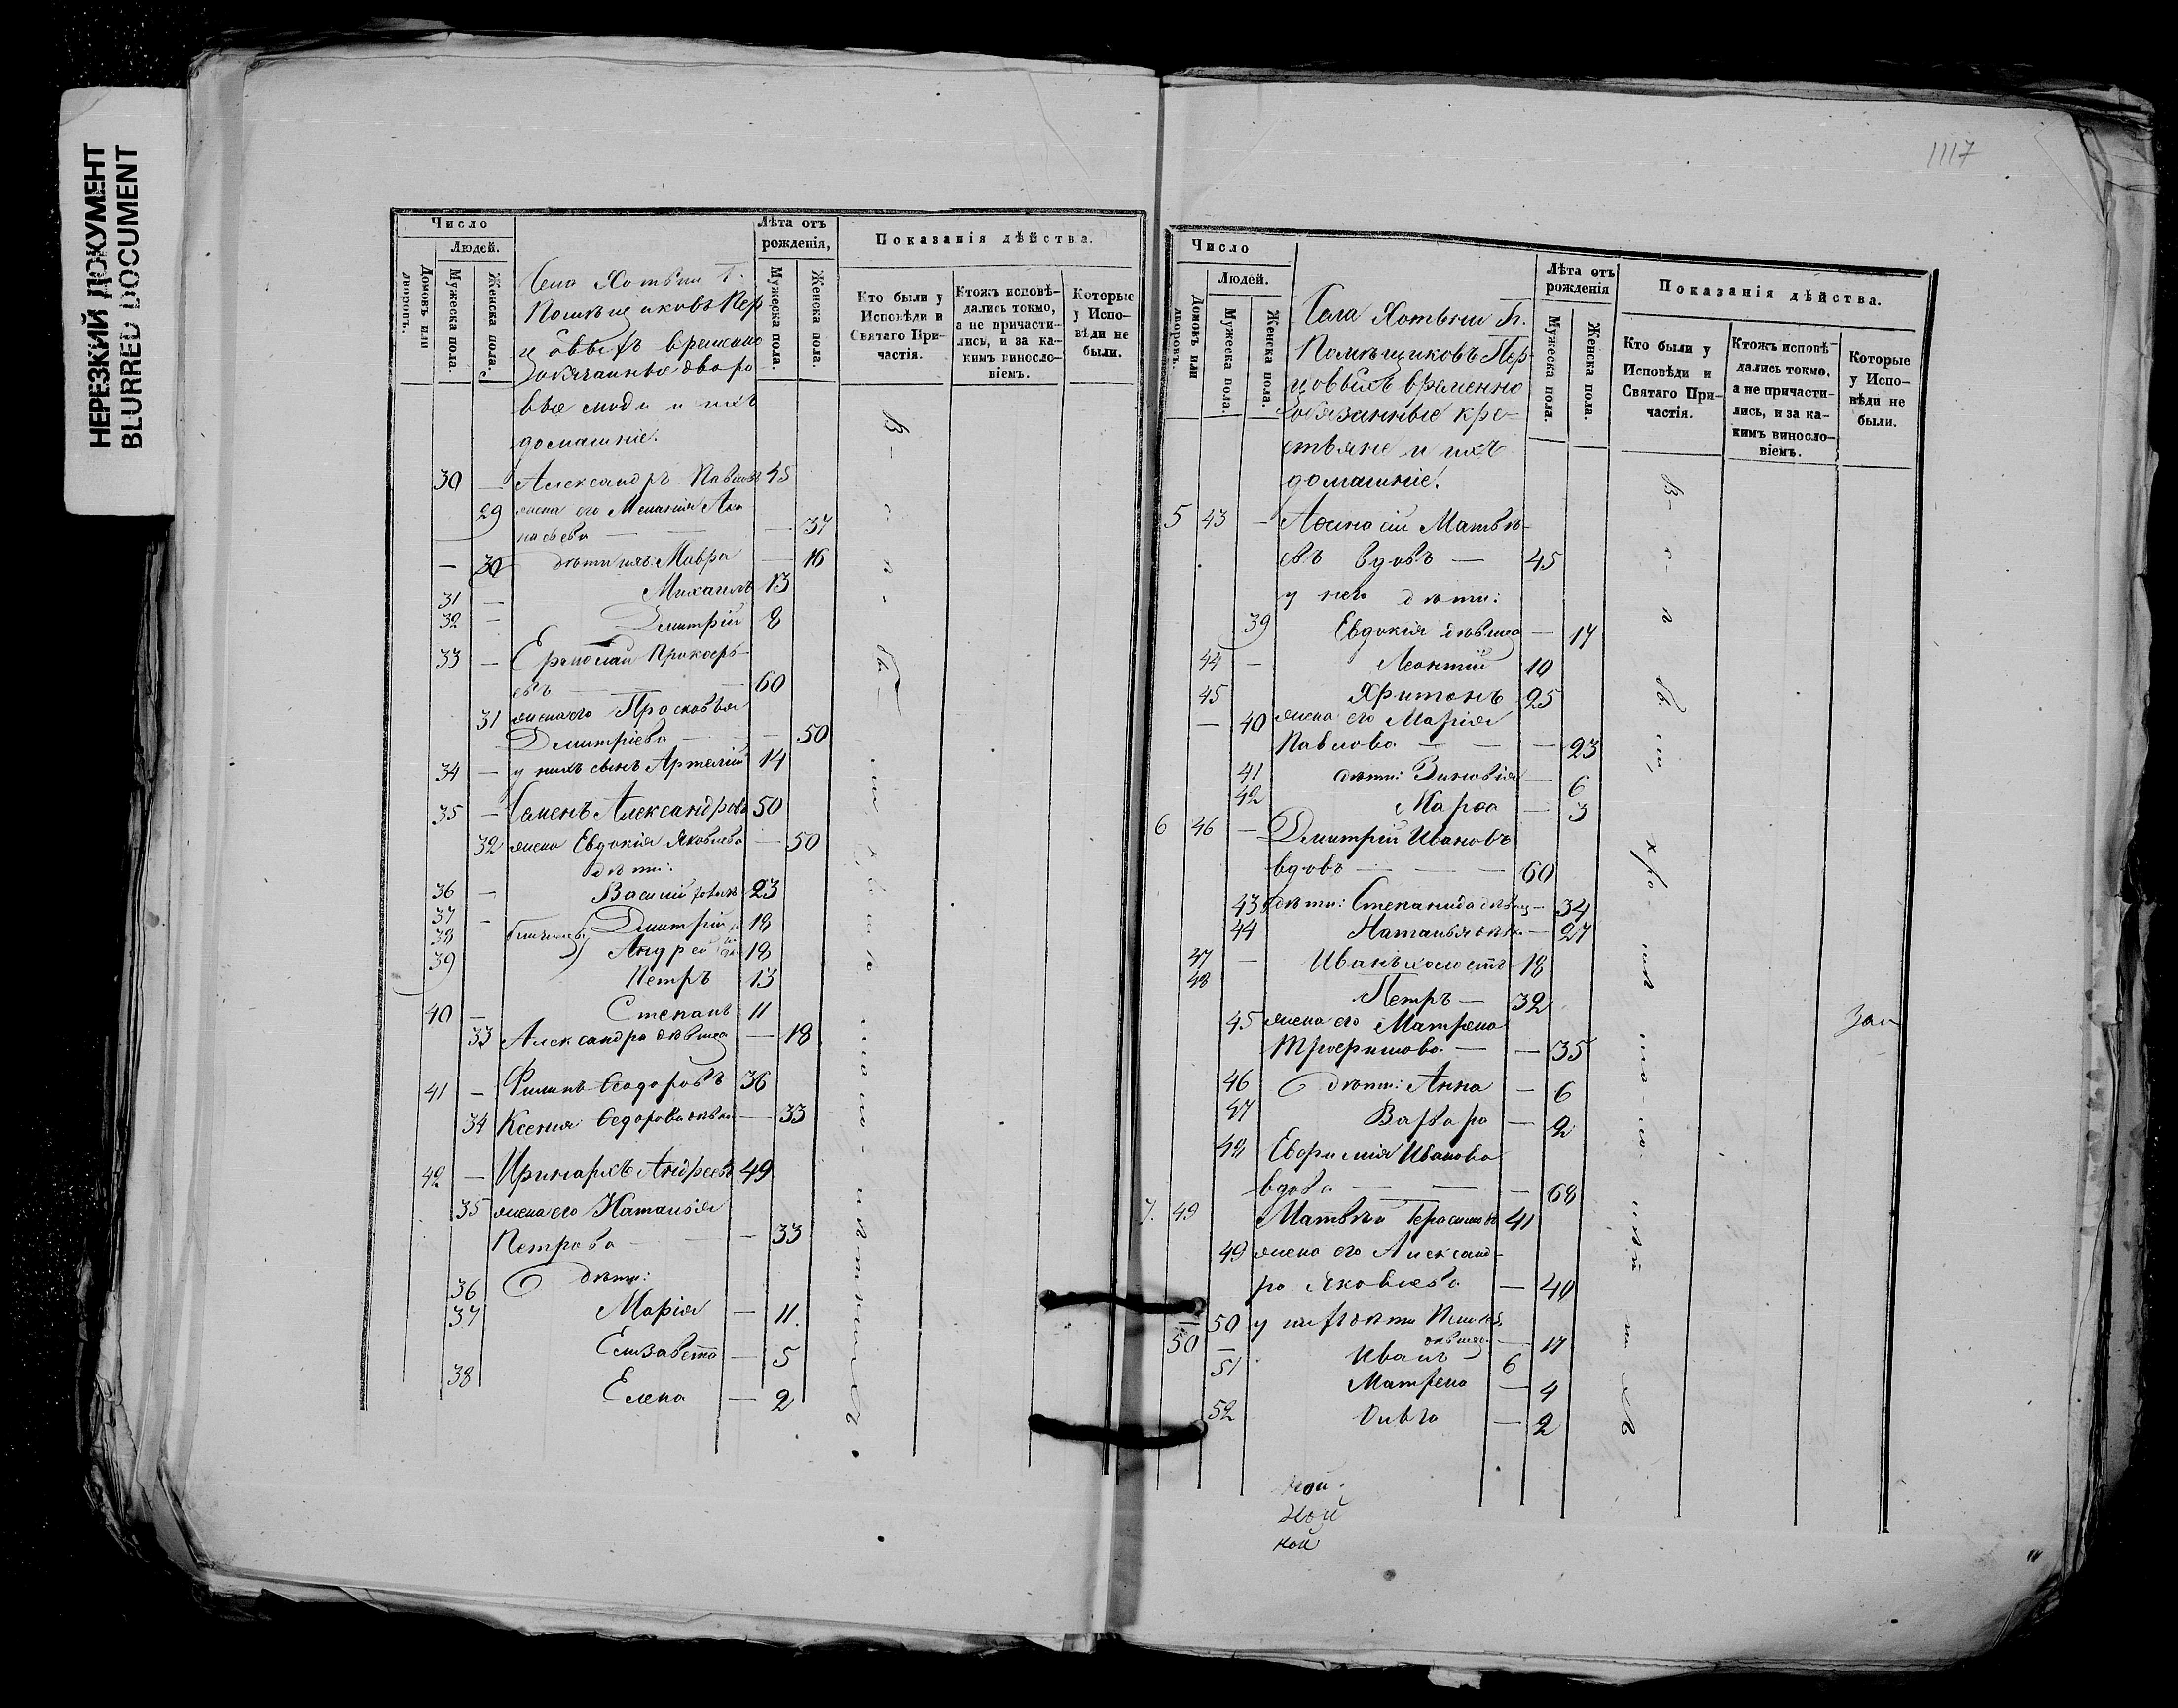 НЕРЕЗКИЙ ДОКУМЕНТ
BLURRED DOCUMENT
Число
Людей.
Домовъ или дворовъ.
Мужеска пола.
Женска пола.
Лѣта отъ рожденія,
Мужеска пола.
Женска пола.
Показанія дѣйства.
Кто были у Исповѣди и Святаго Причастія.
Ктожъ исповѣдались токмо, а не причастились, и за какимъ винословіемъ.
Которые у Исповѣди не были.
Села Хотьши Г.
Помѣщиковъ Пер
цовыхъ временно
обязанные дворо
вые люди и ихъ
домашніе.
30 — Александръ Павловъ 45
29 жена его Меланія Аѳа
насьева — 37
— 30 дѣти ихъ: Мавра — 16
31 — Михаилъ 13
32 — Дмитрій 8
33 — Ермолай Прокофь-
евъ — 60
31 жена его Прасковья
Дмитріева — 50
34 — у нихъ сынъ Артемій 14
35 — Семенъ Александровъ 50
32 жена Евдокія Яковлева — 50
дѣти:
36 — Василій 23
37 — Дмитрій 18
38 близнецы Андрей 18
39 Петръ 13
40 — Степанъ 11
33 Александра дѣвица — 18
41 — Филипъ Ѳеодоровъ 36
34 Ксенія Ѳедорова — 33
42 — Иринархъ Андреевъ 49
35 жена его Наталія
Петрова — 33
36 дѣти:
37 Марія — 11
Елизавета — 5
38 Елена — 2
1117
Число
Людей.
Домовъ или дворовъ.
Мужеска пола.
Женска пола.
Лѣта отъ рожденія
Мужеска пола.
Женска пола.
Показанія дѣйства.
Кто были у Исповѣди и Святаго Причастія.
Ктожъ исповѣдались токмо, а не причастились, и за какимъ винословіемъ.
Которые у Исповѣди не были.
Села Хотьши Г.
Помѣщиковъ Пер-
цовыхъ временно
обязанные кре-
стьяне и ихъ
домашніе.
5 43 — Аѳанасій Матвѣ-
евъ вдовъ — 45
у него дѣти:
39 Евдокія дѣвица — 17
44 — Леонтій 10
45 Харитонъ 25
— 40 жена его Марія
Павлова — — — 23
41 дѣти: Зиновія — 6
42 Марѳа — 3
6 46 — Дмитрій Ивановъ
вдовъ — — — 60
43 дѣти: Степанида — 34
44 Наталья — 27
47 — Иванъ холостъ 18
48 Петръ — 32
45 жена его Матрена
Трифонова — — 35
46 дѣти: Анна — 6
47 Варвара — 2
48 Евфимія Иванова
вдова — — — 68
7. 49 Матвѣй Герасимовъ 41
49 жена его Александ-
ра Яковлева — 40
— 50 у нихъ дѣти
дѣвица — 17
50 — Иванъ — 6
51 Матрена — 4
52 Ольга — 2